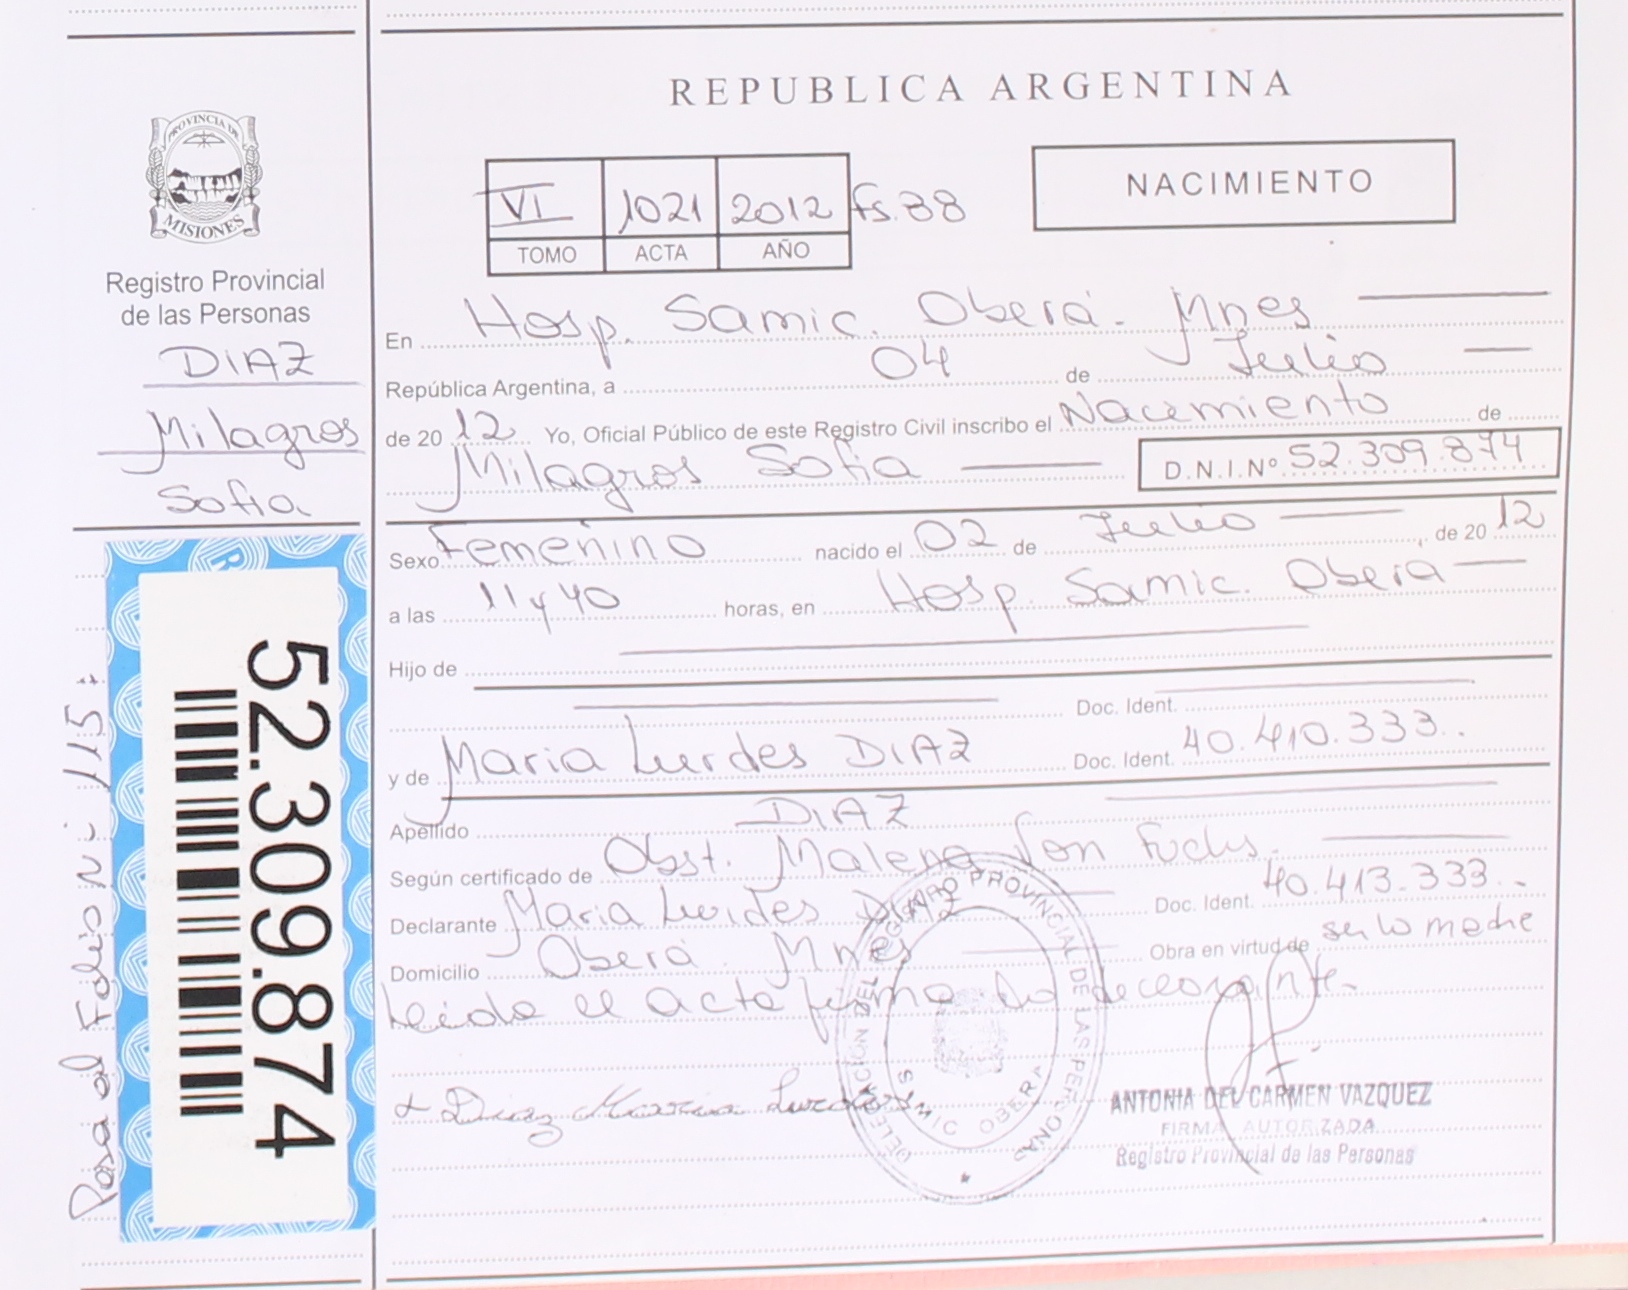 REPUBLICA ARGENTINA
PROVINCIA DE
MISIONES
Registro Provincial
de las Personas
DIAZ
Milagros
Sofia.
52.309.874
Pasa al Folio Nº 115
VI 1021 2012 fs.88
TOMO ACTA AÑO
NACIMIENTO
En Hosp. Samic. Oberá. Mnes
República Argentina, a 04 de Julio
de 2012 Yo, Oficial Público de este Registro Civil inscribo el Nacimiento de
Milagros Sofia D.N.I.Nº 52.309.874
Sexo Femenino nacido el 02 de Julio, de 2012
a las 11 y 40 horas, en Hosp. Samic. Oberá
Hijo de
Doc. Ident.
y de Maria Lurdes DIAZ Doc. Ident. 40.410.333.
Apellido DIAZ
Según certificado de Obst. Malena Von Fuchs.
Declarante Maria Lurdes DIAZ Doc. Ident. 40.413.333.
Domicilio Oberá. Mnes Obra en virtud de ser la madre
Leida el acta firma la declarante.
Diaz Maria Lurdes
DELEGACIÓN DEL REGISTRO PROVINCIAL DE LAS PERSONAS
SAMIC OBERA
ANTONIA DEL CARMEN VAZQUEZ
FIRMA AUTORIZADA
Registro Provincial de las Personas